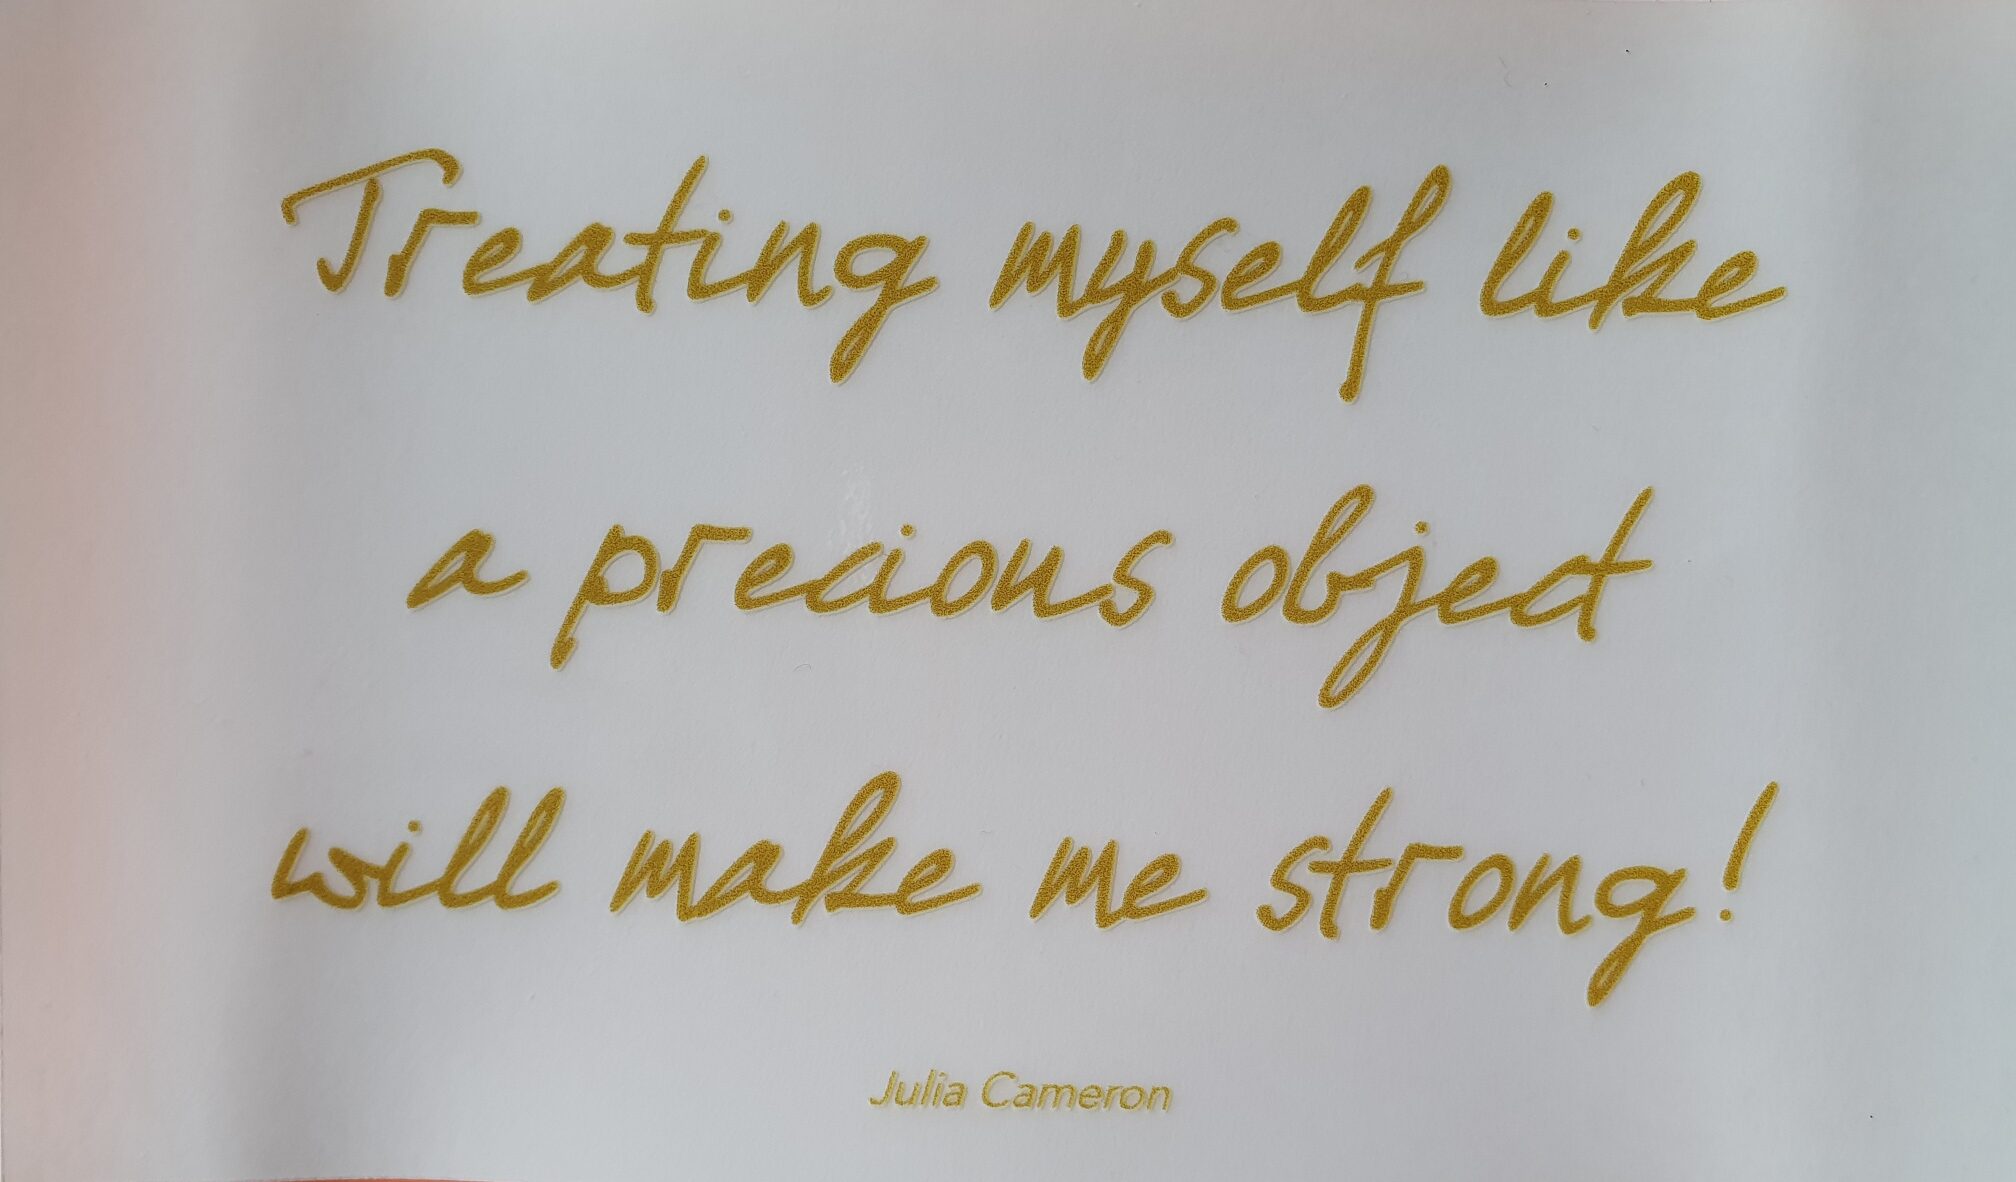 Treating myself like
a precious object
will make me strong!
Julia Cameron